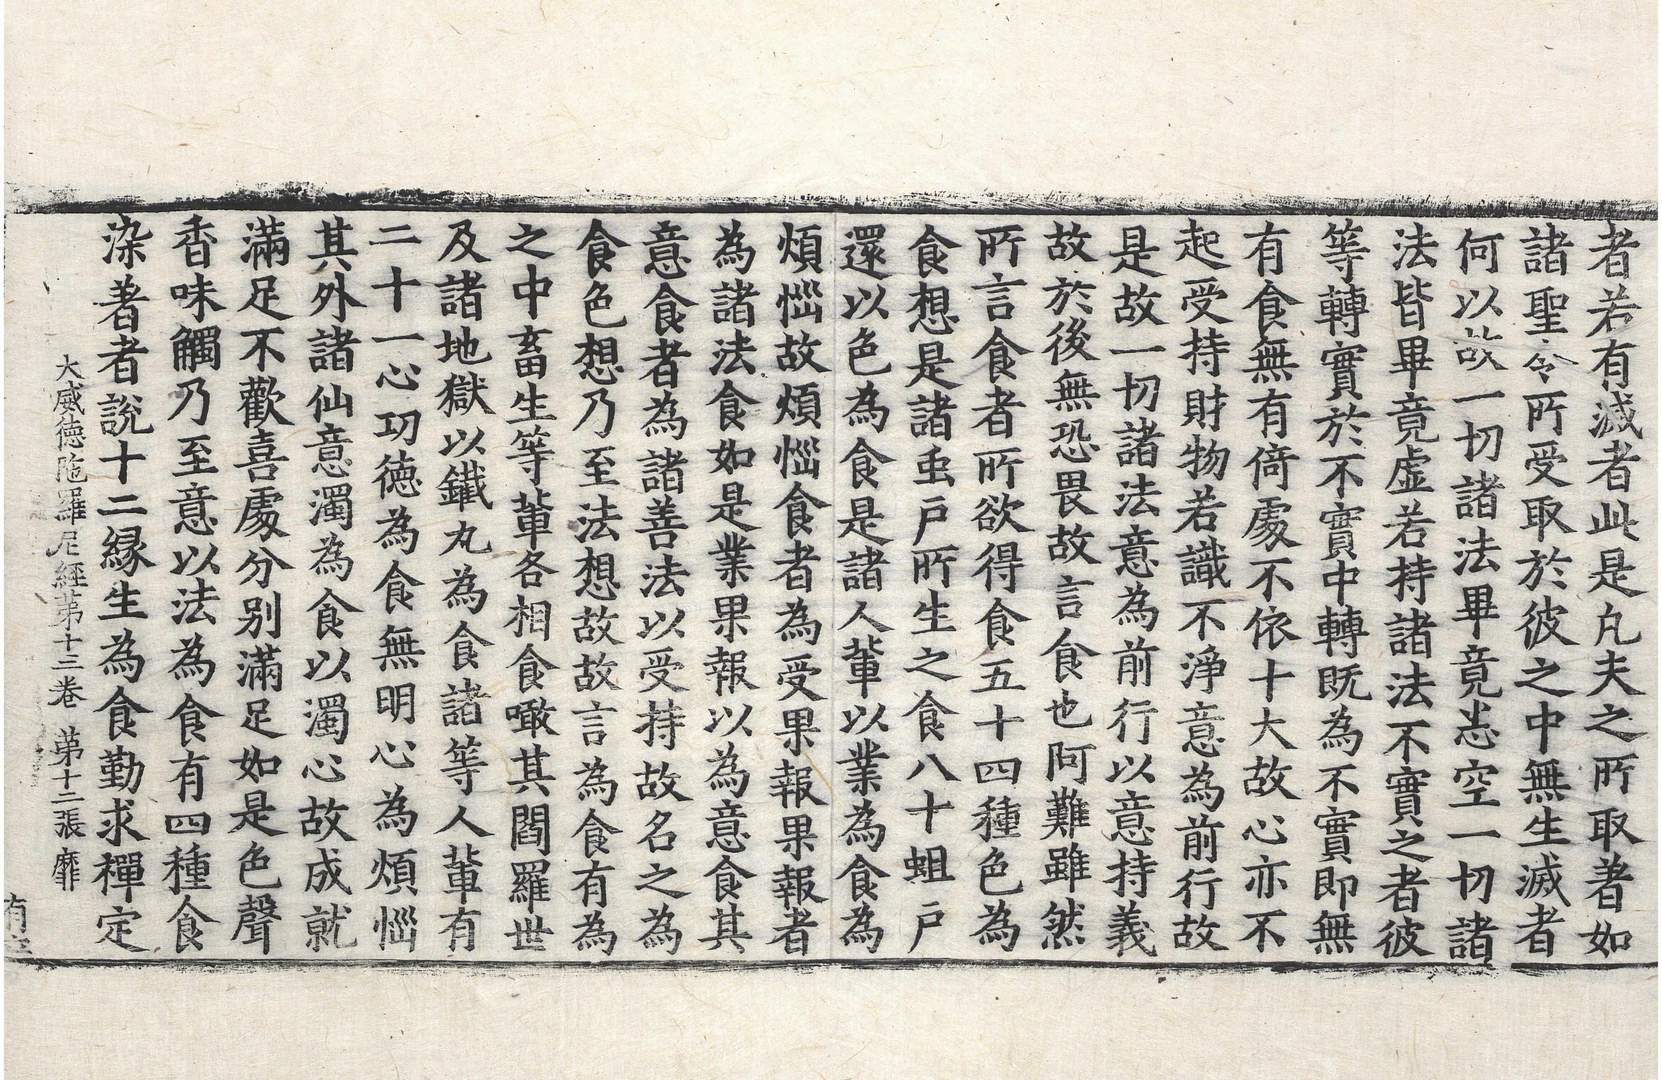 者若有滅者此是凡夫之所取著如
諸聖令所受取於彼之中無生滅者
何以故一切諸法畢竟悉空一切諸
法皆畢竟虛若持諸法不實之者彼
等轉實於不實中轉既為不實即無
有食無有倚處不依十大故心亦不
起受持財物若識不淨意為前行故
是故一切諸法意為前行以意持義
故於後無恐畏故言食也阿難雖然
所言食者所欲得食五十四種色為
食想是諸虫戶所生之食八十蛆戶
還以色為食是諸人軰以業為食為
煩惱故煩惱食者為受果報果報者
為諸法食如是業果報以為意食其
意食者為諸善法以受持故名之為
食色想乃至法想故故言為食有為
之中畜生等軰各相食噉其閻羅世
及諸地獄以鐵丸為食諸等人軰有
二十一心功德為食無明心為煩惱
其外諸仙意濁為食以濁心故成就
滿足不歡喜處分別滿足如是色聲
香味觸乃至意以法為食有四種食
染著者說十二緣生為食勤求禪定
大威德陁羅尼經苐十三卷 苐十二張 靡